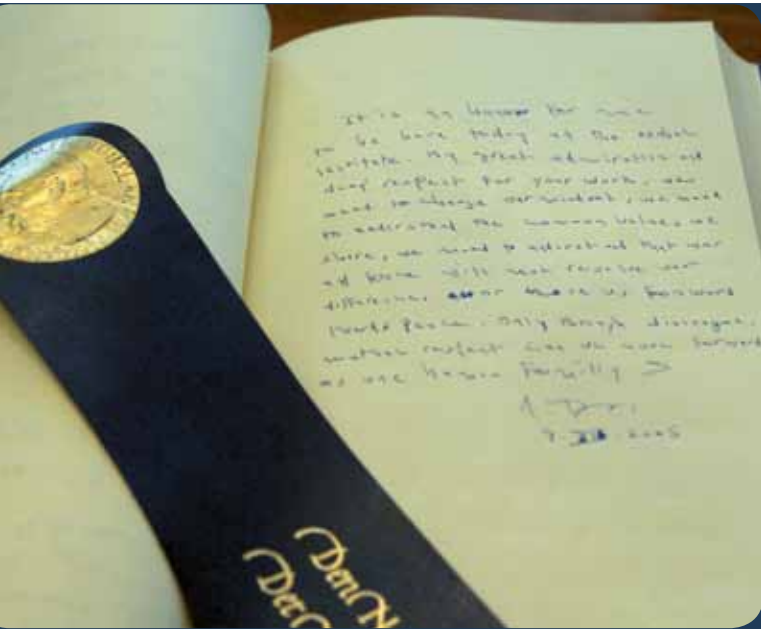 It is an honor for me
to be here today at the Nobel
institute. My great admiration and
deep respect for your work. we
need to change our mindset, we need
to understand the common values we
share, we need to understand that war
and force will not resolve our
differences or move us forward
world peace. Only through dialogue,
mutual respect can we move forward
as one human family
9. 2005
Den N
Det